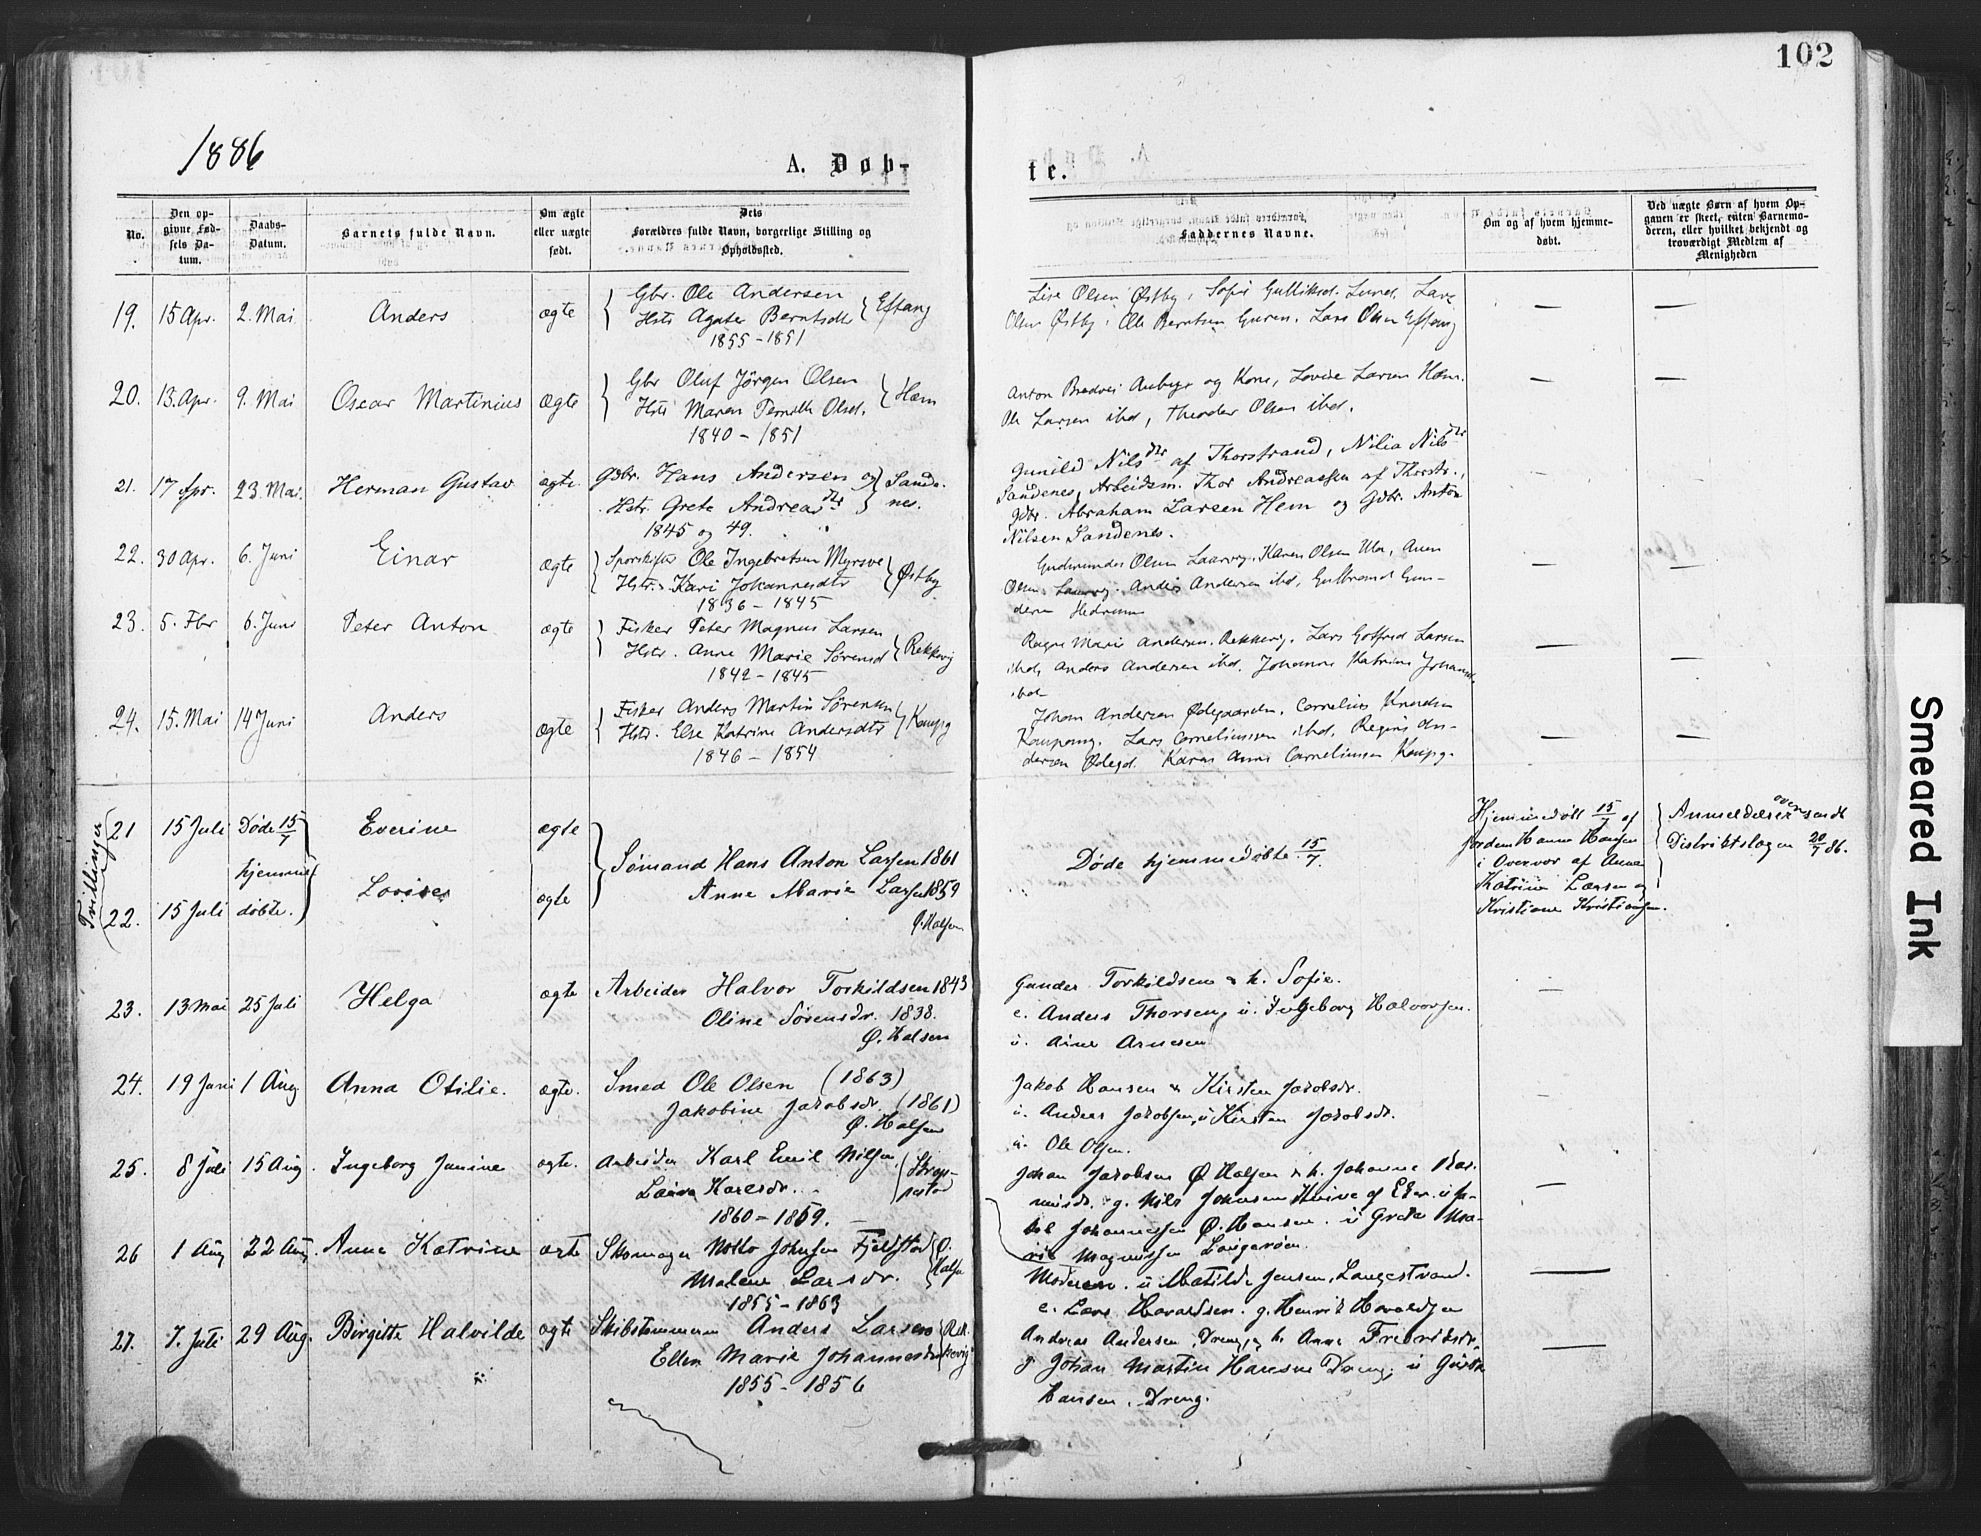 102
1886
A. Døb-
te.
No.
Den op-
givne Fød-
sels Da-
tum.
Daabs-
Datum.
Barnets fulde Navn.
Om ægte
eller uægte
født.
Dets
Forældres fulde Navn, borgerlige Stilling og
Opholdssted.
Faddernes Navne.
Om og af hvem hjemme-
døbt.
Ved uægte Børn af hvem Op-
gaven er skeet, enten Barnemo-
deren, eller hvilket bekjendt og
troværdigt Medlem af
Menigheden
19. 15 Apr. 2. Mai Anders ægte
Gbr. Ole Andersen
Hstr Agate Berntsdtr Eftang
1855 - 1851
Lise Olsen Østby, Sofie Gulliksd. Lund, Lars
Olsen Østby, Ole Berntsen Guren, Lars Olsen Eftang
— —
20. 13. Apr. 9. Mai Oscar Martinius Ægte
Gbr Oluf Jørgen Olsen
Hstr Maren Olsd. Hem
1840 - 1851
Anton og Kone, Lovise Larsen Hem.
Ole Larsen ibd, Theodor Olsen ibd.
— —
21. 17 Apr. 23. Mai. Herman Gustav ægte.
Gdbr. Hans Andersen og
Hstr. Grete Andreasdtr Sande-
nes.
1845 og 49.
Gunild Nilsdtr af Thorstrand, Nilia Nilsdtr
Sandenes, Arbeidsm. Thor Andreassen af Thorstr.,
Gdbr. Abraham Larsen Hem og Gdbr. Anton
Nilsen Sandenes.
—
22. 30 Apr. 6. Juni Einar ægte
Ole Ingebretsen Myrsve
Hstr. Kari Johannesdtr Østby
1836 - 1845
Gudmunder Olsen Laurvig, Karen Olsen
Olsen Laurvig, Andersen ibd, Gulbrand Gun-
dersen Hedrum
— —
23. 5. Fbr 6. Juni Peter Anton ægte
Fisker Peter Magnus Larsen
Hstr. Anne Marie Sørensd Rekkevig
1842 - 1845
Ragna Marie Andersen Rekkevig, Lars Gotfred Larsen
ibd, Anders Andersen ibd. Johanne Katrine
ibd
— —
24. 15. Mai 14 Juni Anders ægte
Fisker Anders Martin Sørensen
Hstr. Else Katrine Andersdtr Kaupg
1846 - 1854
Johan Andersen Ødegaarden, Cornelius Knudsen
Kaupang. Lars Corneliussen ibd, Regine An-
dersen Ødegd. Karen Anne Corneliussen Kaupg.
— —
Tvillinger
21 15 Juli Døde 15/7 Everine ægte
hjemme
22. 15 Juli døbte. Lovise ægte
Sømand Hans Anton Larsen 1861
Anne Marie Larsen 1859
Ø. Halsen
Døde hjemmedøbte 15/7.
Hjemmedøbt 15/7 af
Jordem Hanne Hansen
i Overvær af Anne
Katrine Larsen og
Kristiane Kristiansen.
Anmeldelser oversendt
Distriktslægen 20/7 86.
23. 13 Mai 25 Juli Helga ægte
Arbeider Halvor Torkildsen 1843
Oline Sørensdr. 1838.
Ø. Halsen
Gunder Torkildsen & h. Sofie.
e. Anders Thorsen, u. Ingeborg Halvorsen.
u. Arne Arnesen
—
24. 19 Juni 1 Aug Anna Otilie. ægte.
Smed Ole Olsen (1863)
Jakobine Jakobsdr. (1861)
Ø. Halsen
Jakob Hansen & Kirsten Jakobsdr.
u. Anders Jakobsen, u Kirsten Jakobsdr.
u. Ole Olsen.
-
25. 8 Juli 15 Aug. Ingeborg Janine ægte.
Arbeider Karl Emil Nilsen
Laura Karlsdr.
1860 - 1859.
Johan Jakobsen Ø Halsen & h. Johanne Ras-
musdr. g. Nils Johansen af Eker u
Johannessen Ø. Hansen. u Grete Ma-
rie Magnussen Langeroen.
—
26 1 Aug 22 Aug. Anne Katrine ægte
Skomager Johnsen Fjeldstad Ø.
Malene Larsdr. Halsen
1855 - 1863
Moderen. u Matilde Jensen, Langestrand.
e. Lars Havaldsen. g. Henrik Havaldsen
—
27. 7. Juli 29 Aug. Birgitte Halvilde ægte
Skibstømmerm Anders Larsen Rek-
Ellen Marie Johannesdr kevig
1855 - 1856
Andreas Andersen, Dreng, & h. Anne Fredriksdr,
g. Johan Martin Hansen Dreng, u
Hansen, Dreng.
—
Smeared Ink